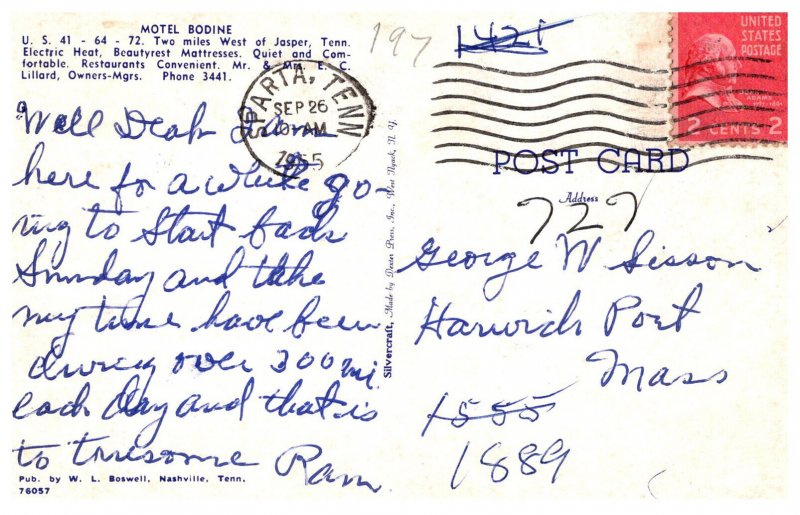 MOTEL BODINE
U. S. 41 - 64 - 72. Two miles West of Jasper, Tenn.
Electric Heat, Beautyrest Mattresses. Quiet and Com-
fortable. Restaurants Convenient. Mr. & Mrs. E. C.
Lillard, Owners-Mgrs. Phone 3441.
Well Deah
here for a while go-
ing to start back
Sunday and take
my time have been
driving over 300 mi.
each day and that is
to tiresome Ram
Pub. by W. L. Boswell, Nashville, Tenn.
76057
197
SPARTA, TENN
SEP 26
AM
1955
Silvercraft, Made by Dexter Press, Inc., West Nyack, N. Y.
1421
UNITED
STATES
POSTAGE
2 CENTS 2
POST CARD
Address
727
George W Sisson
Harwich Port
Mass
1555
1889